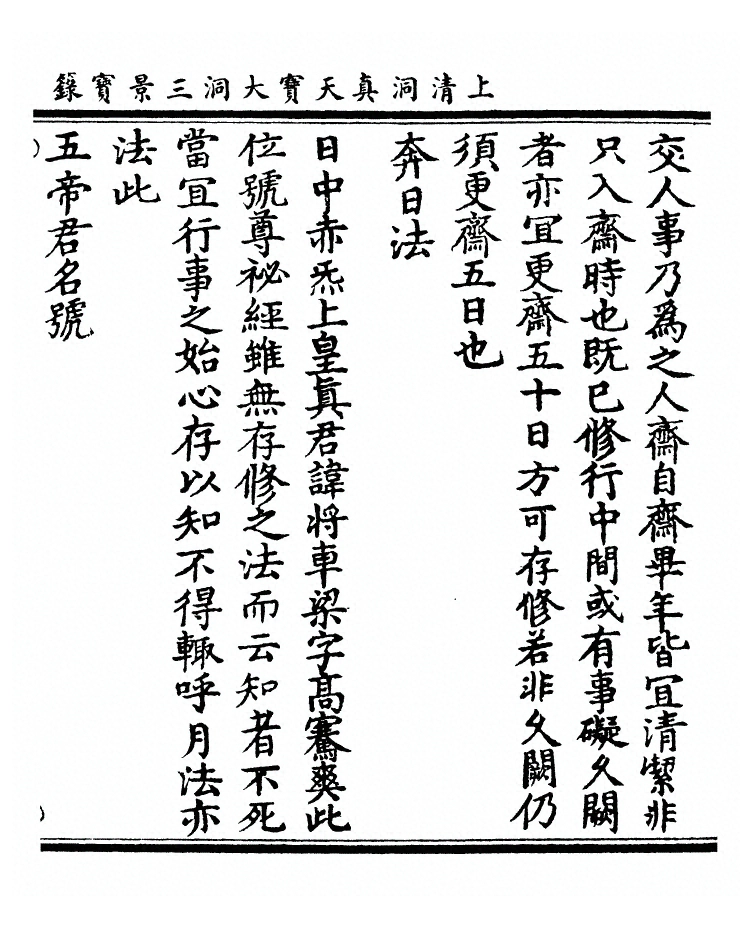 上清洞真天寶大洞三景寶籙
交人事乃爲之人齋自齋畢年皆冝清潔非
只入齋時也既已修行中間或有事礙久闕
者亦冝更齋五十日方可存修若非久闕仍
須更齋五日也
奔日法
日中赤炁上皇眞君諱將車梁字髙騫爽此
位號尊祕經雖無存修之法而云知者不死
當冝行事之始心存以知不得輙呼月法亦
法此
五帝君名號